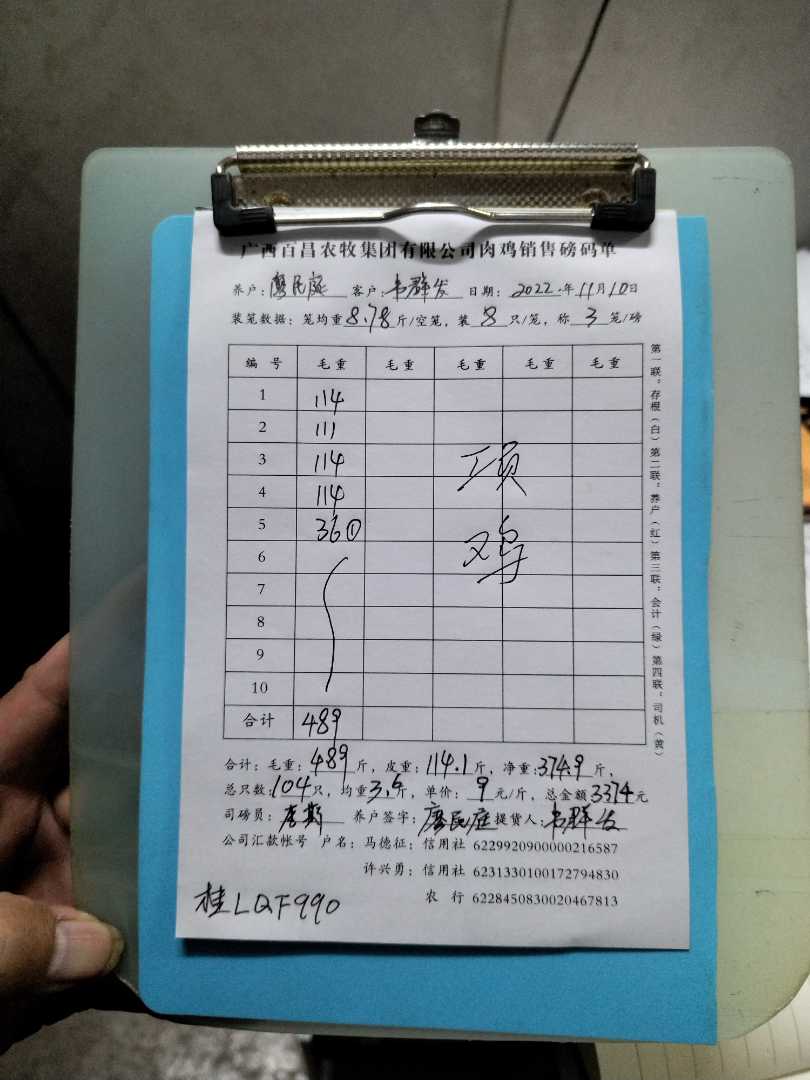 广西百昌农牧集团有限公司肉鸡销售磅码单
养户：廖民庭 客户：韦群发 日期：2022年11月10日
装笼数据：笼均重8.78斤/空笼，装8只/笼，称3笼/磅
编号 毛重 毛重 毛重 毛重 毛重
1 114
2 111
3 114 项
4 114
5 36①
6 鸡
7
8
9
10
合计 489
合计：毛重：489斤，皮重：114.1斤，净重：374.9斤，
总只数：104只，均重3.6斤，单价：9元/斤，总金额3374元
司磅员： 养户签字：廖民庭 提货人：韦群发
公司汇款帐号 户名：马德征：信用社 6229920900000216587
许兴勇：信用社 6231330100172794830
农行 6228450830020467813
桂LQF990
第一联：存根（白）第二联：养户（红）第三联：会计（绿）第四联：司机（黄）